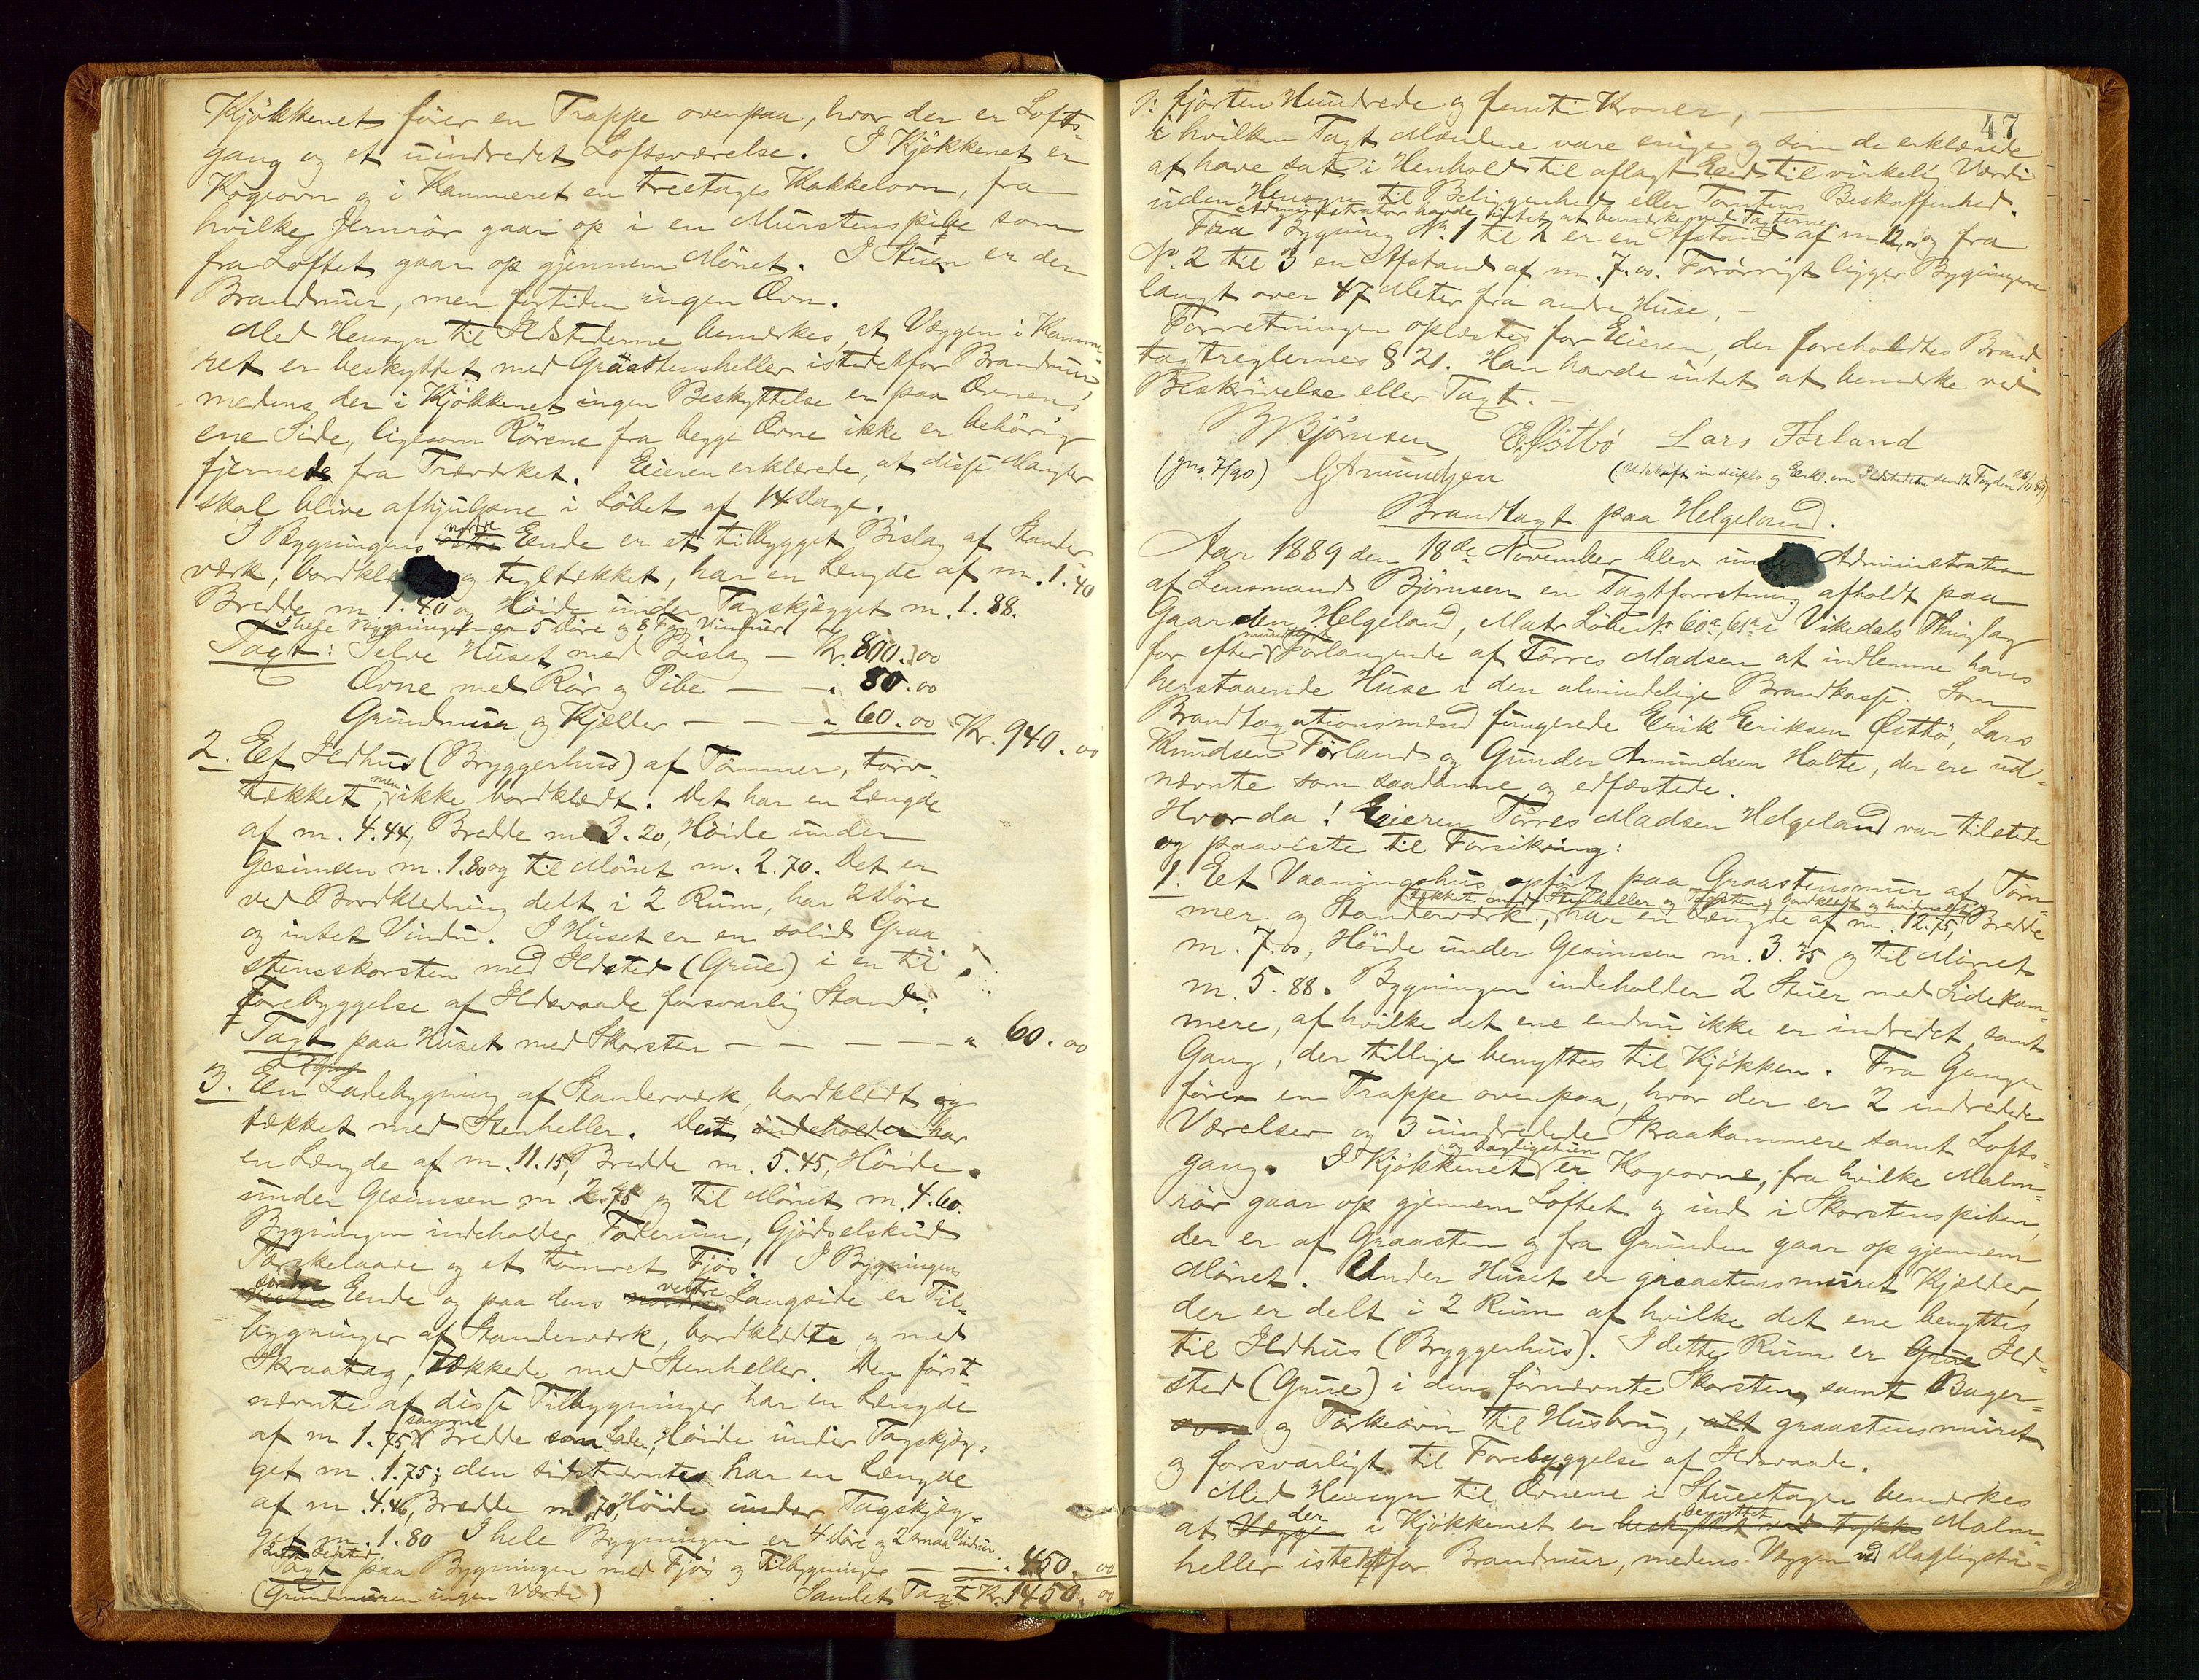 Kjøkkenet fører en Trappe ovenpaa, hvor der er Lofts-
gang og et uindredet Loftsværelse. I Kjøkkenet er
Kogeovn og i Kammeret en treetages Kakkelovn, fra
hvilke Jernrør gaar op i en Murstenspibe som
fra Loftet gaar op gjennem Mønet. I Stuen er der
Brandmur, men fortiden ingen Ovn.
Med Hensyn til Ildstederne bemærkes, at Væggen i Kamme-
ret er beskyttet med Graastensheller istedetfor Brandmur,
medens der i Kjøkkenet ingen Beskyttelse er paa Ovnens
ene Side, ligesom Rørene fra begge Ovne ikke er behørig
fjernede fra Træværket. Eieren erklærede, at disse Mangler
skal blive afhjulpne i Løbet af 14 Dage.
I Bygningens nordre Ende er et tilbygget Bislag af Stander
værk, bordklædt og tegltækket, har en Længde af m. 1.40
Bredde m. 1.40 og Høide under Tagskjægget m. 1.88.
I hele Bygningen er 5 Døre og 8 Fag Vinduer
Taxt: Selve Huset med Bislag — Kr. 800.00
Ovne med Rør og Pibe — — " 80.00
Grundmur og Kjælder — — — " 60.00 Kr. 940.00
2. Eet Ildhus (Bryggerhus) af Tømmer, torv-
tækket, men ikke bordklædt. Det har en Længde
af m. 4.44, Bredde m. 3.20, Høide under
Gesimsen m. 1.80 og til Mønet m. 2.70. Det er
ved Bordklædning delt i 2 Rum, har 2 Døre
og intet Vindu. I Huset er en solid Graa
stensskorsten med Ildsted (Grue) i en til
Forebyggelse af Ildsvaade forsvarlig Stand.
Taxt paa Huset med Skorsten — — — — — " 60.00
3. Een Ladebygning af Standerværk, bordklædt og
tækket med Stenheller. Den indeholder har
en Længde af m. 11.15, Bredde m. 5.45, Høide
under Gesimsen m. 2.75 og til Mønet m. 4.60.
Bygningen indeholder Foderum, Gjødselskud
Tærskelaave og et tømret Fjøs. I Bygningens
søndre Ende og paa dens nordre vestre Langside er Til-
bygninger af Standerværk, bordklædte og med
Skraatag, tækkede med Stenheller. Den først
nævnte af disse Tilbygninger har en Længde
af m 1.75, samme Bredde som Laden, Høide under Tagskjæg-
get m. 1.75; den sidstnævnte har en Længde
af m. 4.46, Bredde m. 1.70, Høide under Tagskjæg-
get m. 1.80 I hele Bygningen er 4 Døre og 2 smaa Vinduer.
Intet Ildsted.
Taxt paa Bygningen med Fjøs og Tilbygninger — — " 450.00
(Grundmuren ingen Værdi) Samlet Taxt Kr. 1450.00
47
ɔ: fjorten Hundrede og femti Kroner, —
i hvilken Taxt Mændene vare enige og som de erklærede
at have sat i Henhold til aflagt Eed til virkelig Værdi
uden Hensyn til Beliggenhed eller Tomtens Beskaffenhed.
Administrator havde intet at bemærke ved Taxterne.
Fra Bygning No. 1 til 2 er en Afstand af m 12,00 og fra
No. 2 til 3 en Afstand af m. 7.00. Forøvrigt ligger Bygningerne
langt over 47 Meter fra andre Huse. —
Forretningen oplæstes for Eieren, der foreholdtes Brand-
taxtreglernes § 21. Han havde intet at bemærke ved
Beskrivelse eller Taxt. —
B Bjørnsen E. Østbø Lars Førland
(jno. 7/90) G Amundsen (Udskrift in duplo og Erkl. om Ildstederne sendt Fogden 28/11 89)
Brandtaxt paa Helgeland.
Aar 1889 den 18de November blev under Administration
af Lensmand Bjørnsen en Taxtforretning afholdt paa
Gaarden Helgeland, Matr. Løbe No. 60a, 61a i Vikedals Thinglag
for efter mundtligt Forlangende af Tørres Madsen at indlemme hans
herstaaende Huse i den almindelige Brandkasse. Som
Brandtaxationsmænd fungerede Erik Eriksen Østbø, Lars
Knudsen Førland og Gunder Amundsen Holte, der ere ud-
nævnte som saadanne og edfæstede.
Hvor da! Eieren Tørres Madsen Helgeland var tilstede
og paaviste til Forsikring:
1. Eet Vaaningshus opført paa Graastensmur af Tøm-
mer og Standerværk, tækket med Stenheller og Tagsten, bordklædt og hvidmalet, har en Længde af m. 12.75, Bredde
m. 7.00, Høide under Gesimsen m. 3.35 og til Mønet
m. 5.88. Bygningen indeholder 2 Stuer med Sidekam-
mere, af hvilke det ene endnu ikke er indredet, samt
Gang, der tillige benyttes til Kjøkken. Fra Gangen
fører en Trappe ovenpaa, hvor der er 2 indredede
Værelser og 3 uindredede Skraakammere samt Lofts-
gang. I Kjøkkenet og Dagligstuen er Kogeovne, fra hvilke Malm-
rør gaar op gjennem Loftet og ind i Skorstenspiben,
der er af Graasten og fra Grunden gaar op gjennem
Mønet. Under Huset er graastensmuret Kjælder,
der er delt i 2 Rum af hvilke det ene benyttes
til Ildhus (Bryggerhus). I dette Rum er Grue Ild-
sted (Grue) i den førnævnte Skorsten, samt Bager-
ovn og Tørkeovn til Husbrug, alt graastensmuret
og forsvarligt til Forebyggelse af Ildsvaade.
Med Hensyn til Ovnene i Stueetagen bemærkes
at Vægge der i Kjøkkenet er beskyttet ved tykke benyttet Malm-
heller istedetfor Brandmur, medens Væggen ved Dagligstu-